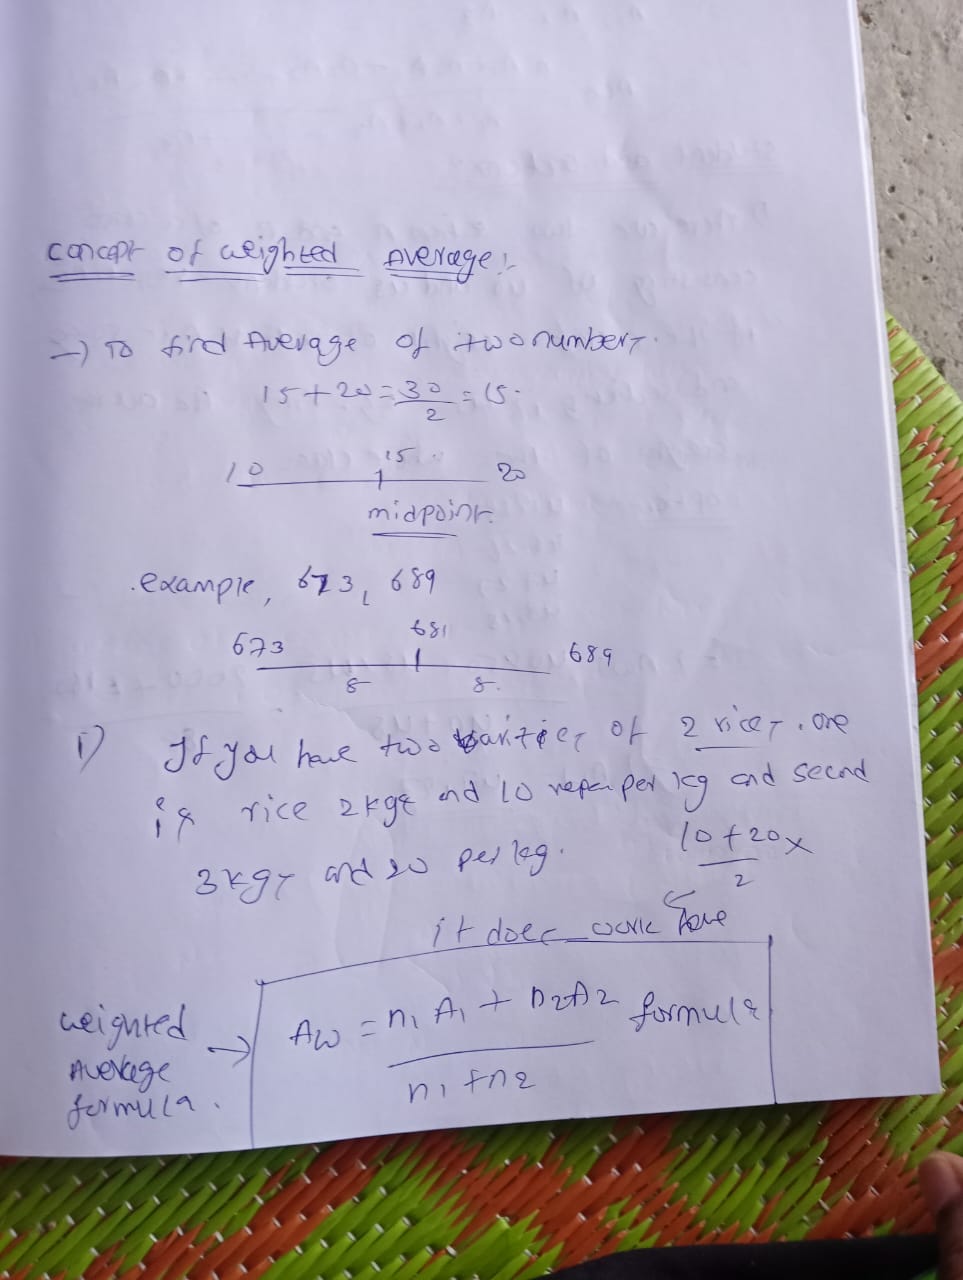 concept of weighted Average:-
→ To find Average of two numbers.
15+20=30/2=15.
10 15 20
midpoint.
example, 673, 689
673 681 689
8 8.
1) If you have two varities of 2 rices. one
is rice 2kgs and 10 per kg and second
3kgs and 20 per kg.
10+20/2 x
it does work here
weighted Average formula. → Aw = n1 A1 + n2A2 / n1+n2 formula